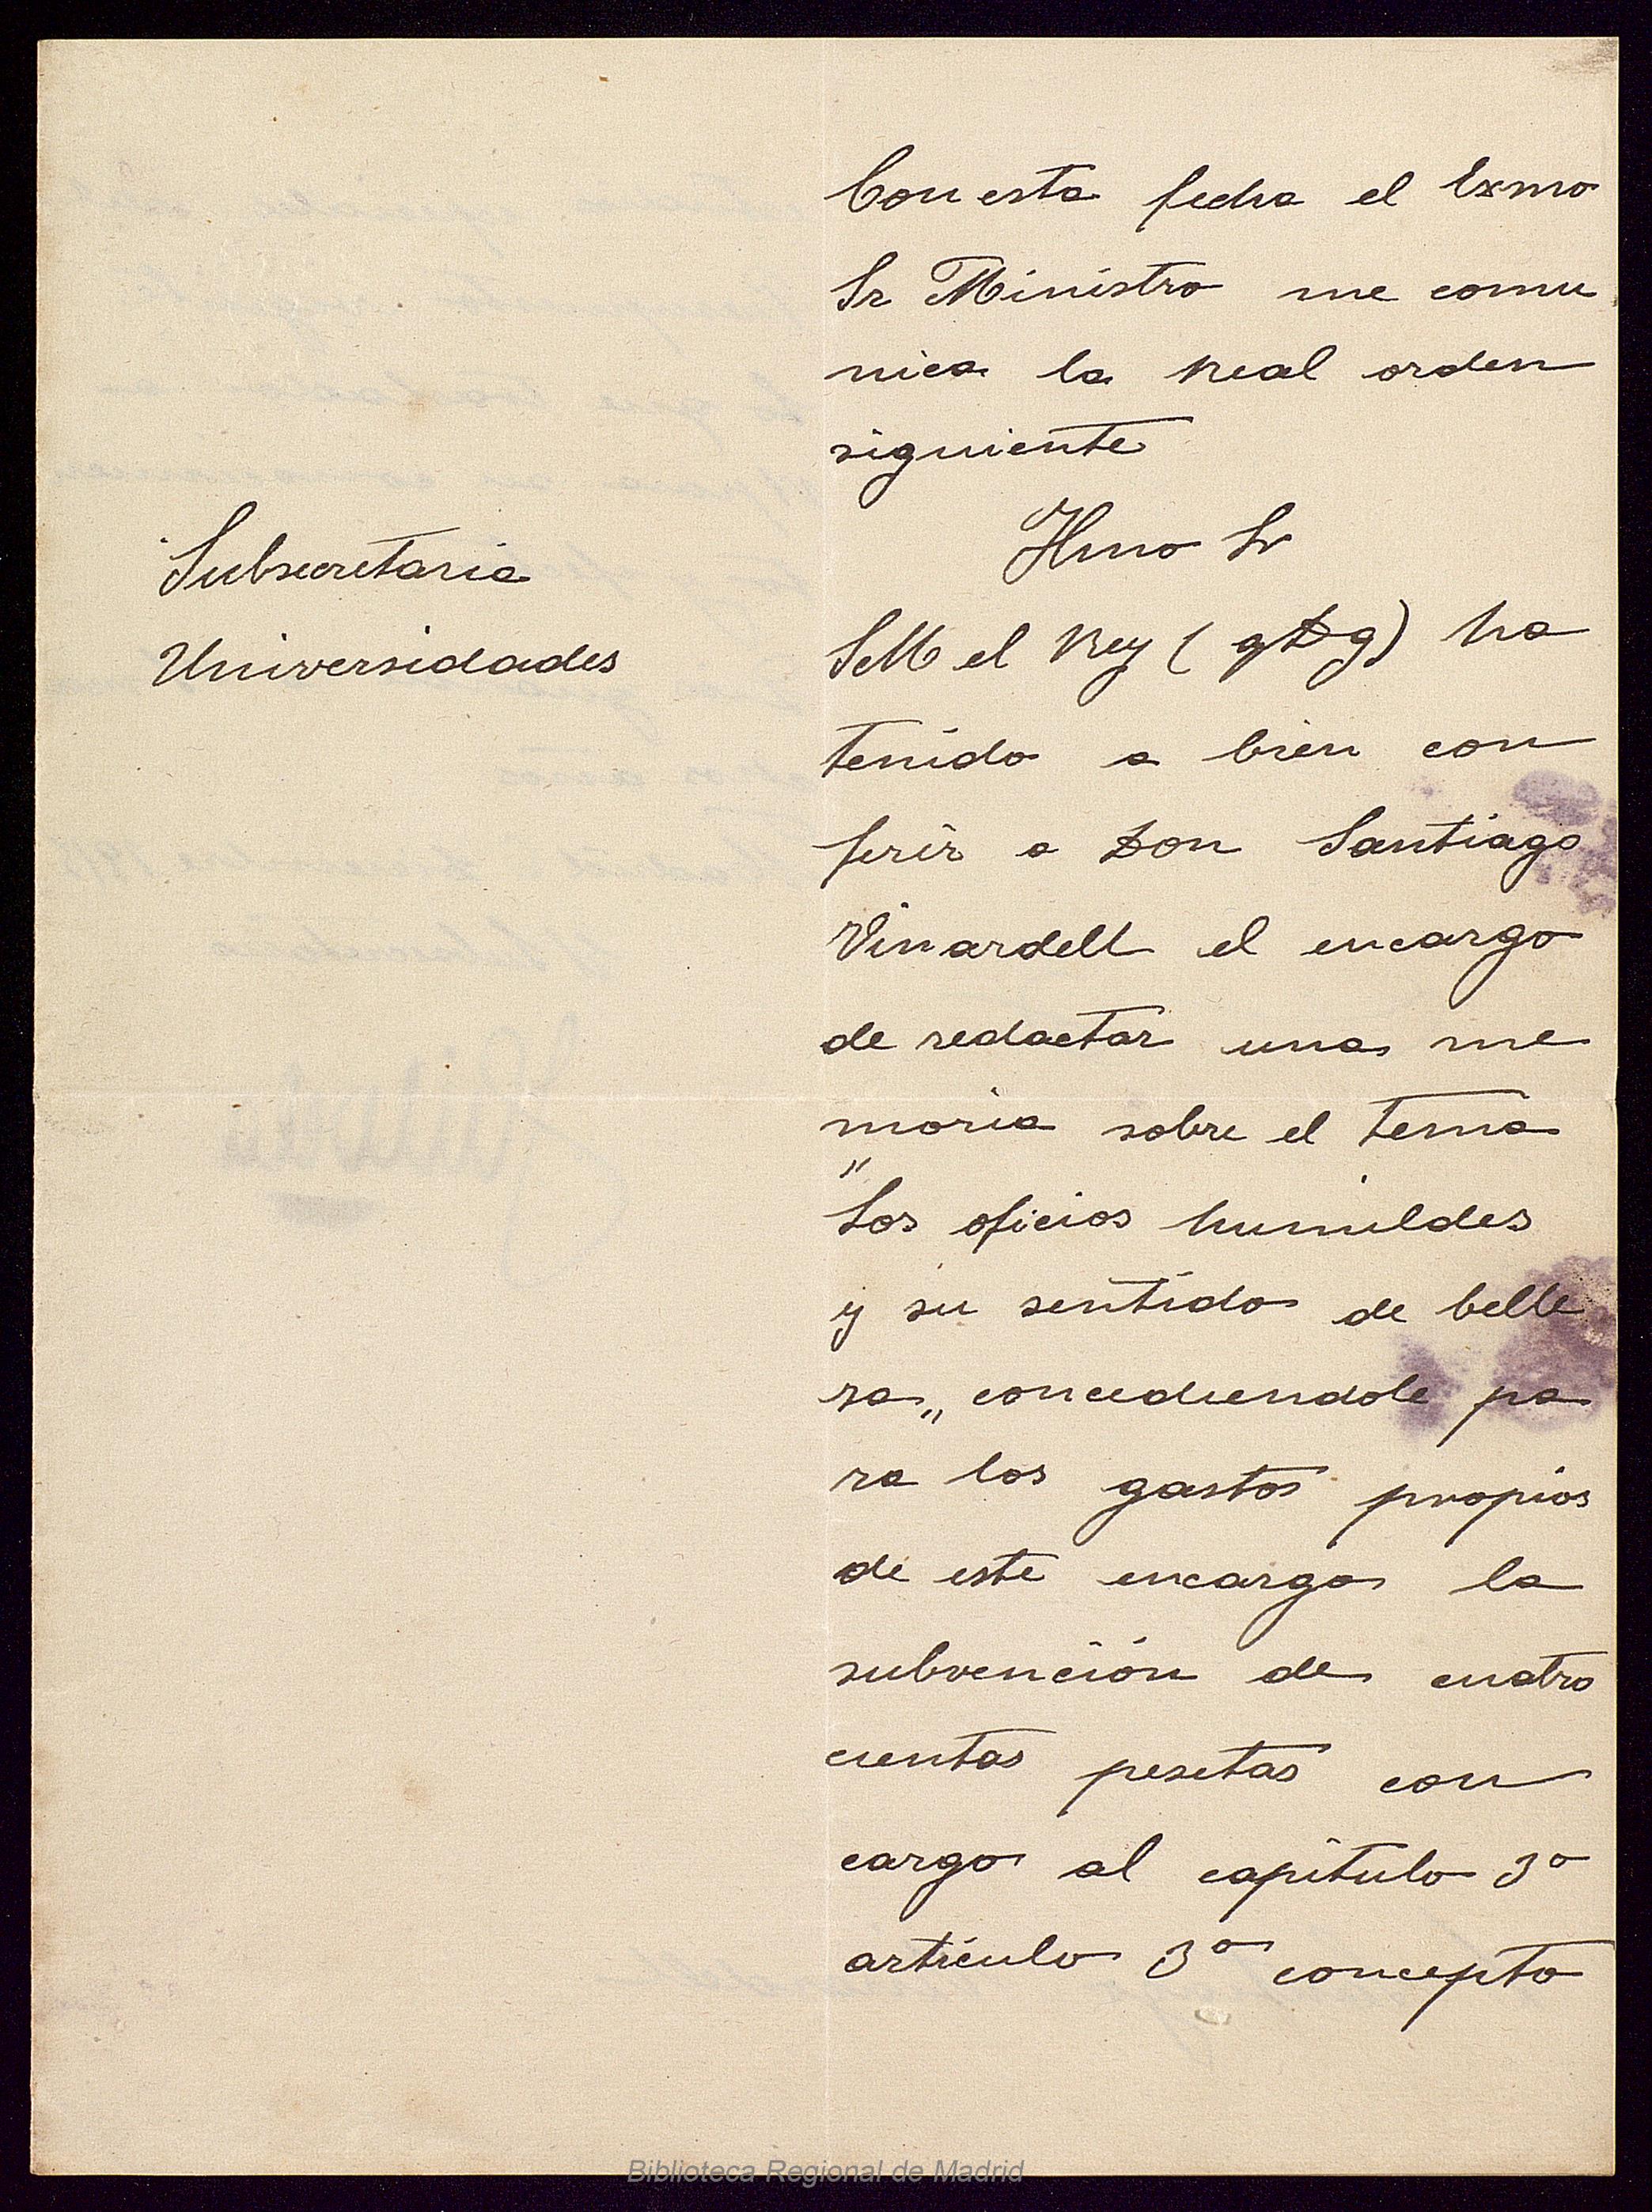 Con esta fecha el Exmo
Sr Ministro me comu
nica la Real orden
siguiente
Ilmo Sr
Subsecretaria
Universidades
S M el Rey ( q D g ) ha
tenido a bien con
ferir a Don Santiago
Vinardell el encargo
de redactar una me
moria sobre el tema
"Los oficios humildes
y su sentido de belle
za" concediendole pa
ra los gastos propios
de este encargo la
subvención de cuatro
cientas pesetas con
cargo al capítulo 3º
artículo 3º concepto
Biblioteca Regional de Madrid